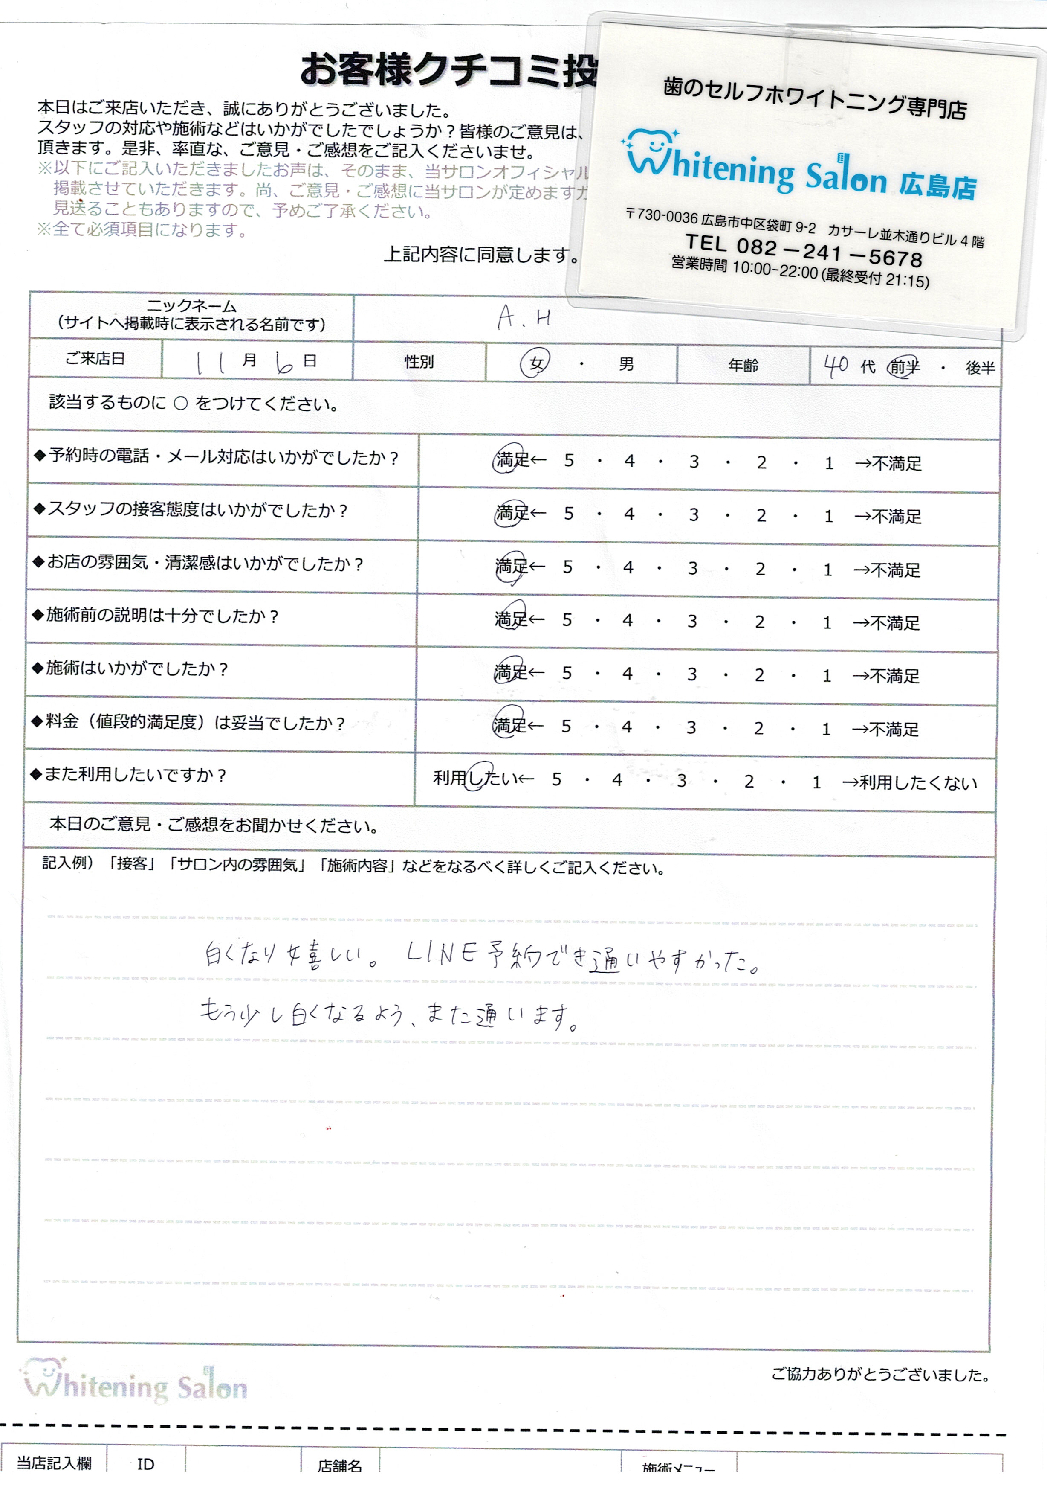 お客様クチコミ投
本日はご来店いただき、誠にありがとうございました。
スタッフの対応や施術などはいかがでしたでしょうか？皆様のご意見は、
頂きます。是非、率直な、ご意見・ご感想をご記入くださいませ。
※以下にご記入いただきましたお声は、そのまま、当サロンオフィシャル
掲載させていただきます。尚、ご意見・ご感想に当サロンが定めますガ
見送ることもありますので、予めご了承ください。
※全て必須項目になります。
上記内容に同意します。
歯のセルフホワイトニング専門店
Whitening Salon 広島店
〒730-0036 広島市中区袋町 9-2 カサーレ並木通りビル 4 階
TEL 082－241－5678
営業時間 10:00-22:00 (最終受付 21:15)
ニックネーム
（サイトへ掲載時に表示される名前です）
A.H
ご来店日 11月6日 性別 女 ・ 男 年齢 40代 前半 ・ 後半
該当するものに ○ をつけてください。
◆予約時の電話・メール対応はいかがでしたか？ 満足← 5 ・ 4 ・ 3 ・ 2 ・ 1 →不満足
◆スタッフの接客態度はいかがでしたか？ 満足← 5 ・ 4 ・ 3 ・ 2 ・ 1 →不満足
◆お店の雰囲気・清潔感はいかがでしたか？ 満足← 5 ・ 4 ・ 3 ・ 2 ・ 1 →不満足
◆施術前の説明は十分でしたか？ 満足← 5 ・ 4 ・ 3 ・ 2 ・ 1 →不満足
◆施術はいかがでしたか？ 満足← 5 ・ 4 ・ 3 ・ 2 ・ 1 →不満足
◆料金（値段的満足度）は妥当でしたか？ 満足← 5 ・ 4 ・ 3 ・ 2 ・ 1 →不満足
◆また利用したいですか？ 利用したい← 5 ・ 4 ・ 3 ・ 2 ・ 1 →利用したくない
本日のご意見・ご感想をお聞かせください。
記入例）「接客」「サロン内の雰囲気」「施術内容」などをなるべく詳しくご記入ください。
白くなり嬉しい。LINE予約でき通いやすかった。
もう少し白くなるよう、また通います。
Whitening Salon
ご協力ありがとうございました。
当店記入欄 ID 店舗名 施術メニュー